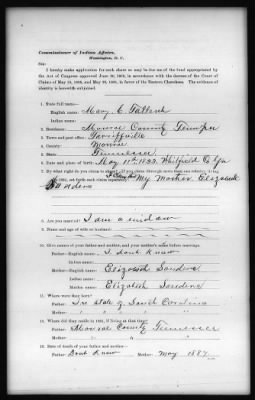 Commissioner of Indian Affairs,
Washington, D. C.
Sir:
I hereby make application for such share as may be due me of the fund appropriated by
the Act of Congress approved June 30, 1906, in accordance with the decrees of the Court of
Claims of May 18, 1905, and May 28, 1906, in favor of the Eastern Cherokees. The evidence of
identity is herewith subjoined.
1. State full name—
English name: Mary C
Indian name:
2. Residence: Monroe County
3. Town and post office:
4. County: Monroe
5. State: Tennessee
6. Date and place of birth: May 11th 1833 Whitfield Co Ga
7. By what right do you claim to share? If you claim through more than one relative living
in 1851, set forth each claim separately: My Mother Elizabeth
Sanders
8. Are you married? I am a widow
9. Name and age of wife or husband:
10. Give names of your father and mother, and your mother's name before marriage.
Father—English name: I dont know
Indian name:
Mother—English name: Elizabeth Sanders
Indian name:
Maiden name: Elizabeth Sanders
11. Where were they born?
Father: State of South Carolina
Mother: " " " "
12. Where did they reside in 1851, if living at that time?
Father: Monroe County Tennessee
Mother: " " "
13. Date of death of your father and mother—
Father: Dont Know Mother: May 1887